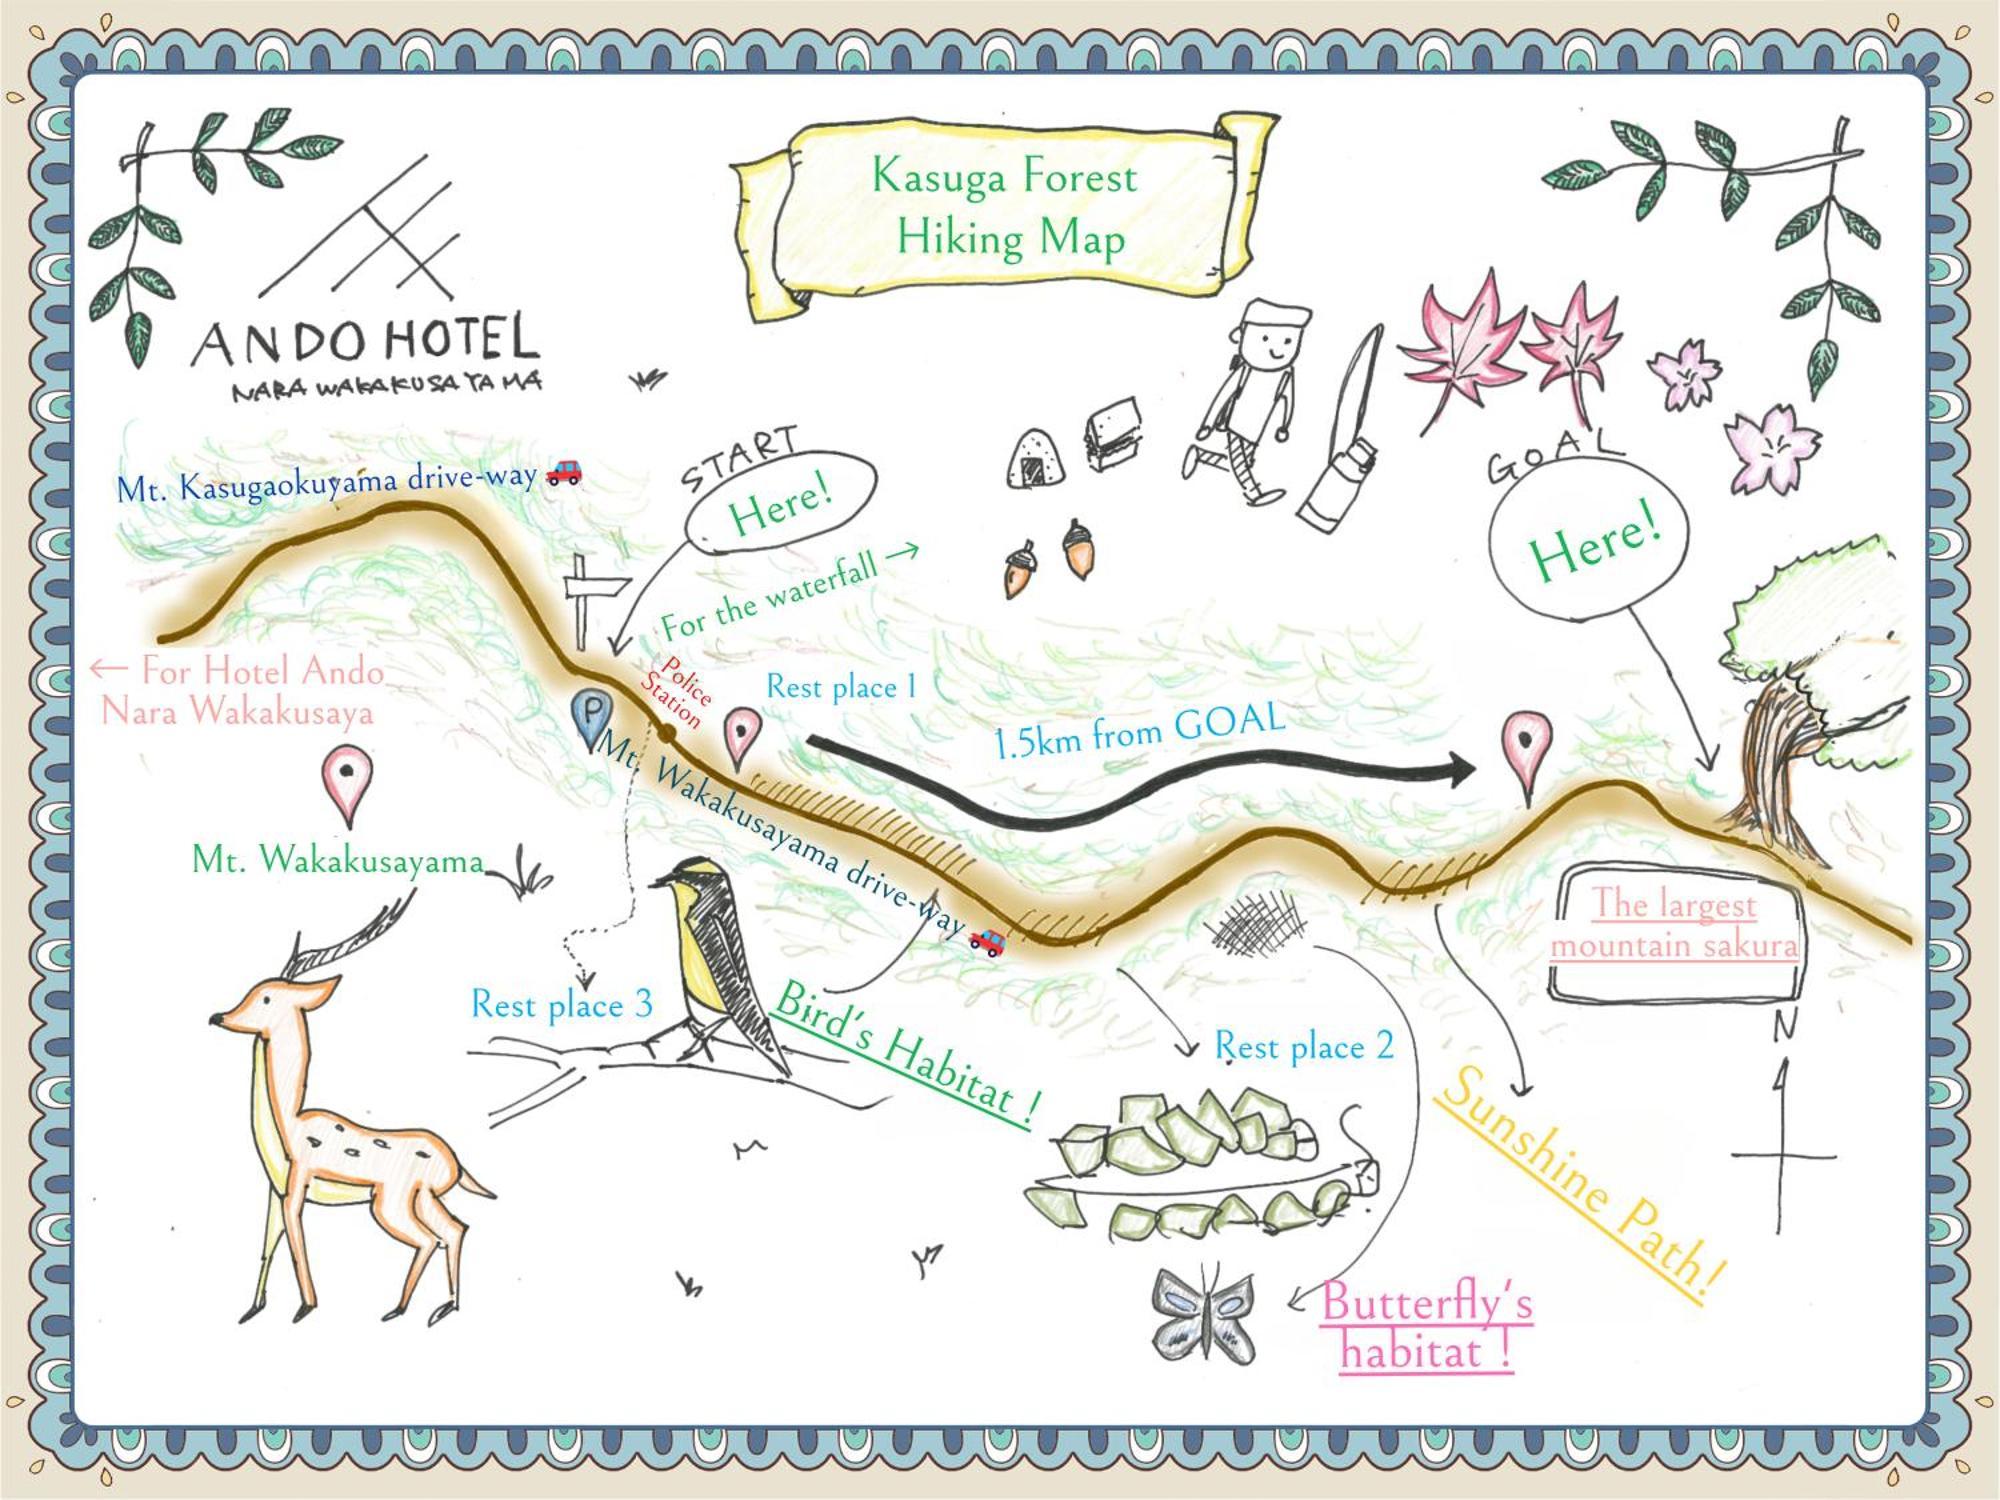 Kasuga Forest
Hiking Map
ANDO HOTEL
NARA WAKAKUSAYAMA
START
Here!
GOAL
Here!
Mt. Kasugaokuyama drive-way
For the waterfall →
← For Hotel Ando
Nara Wakakusaya
Police
Station
Rest place 1
1.5km from GOAL
P
Mt. Wakakusayama drive-way
Mt. Wakakusayama
The largest
mountain sakura
Rest place 3
Bird's Habitat !
Rest place 2
N
Sunshine Path!
Butterfly's
habitat !